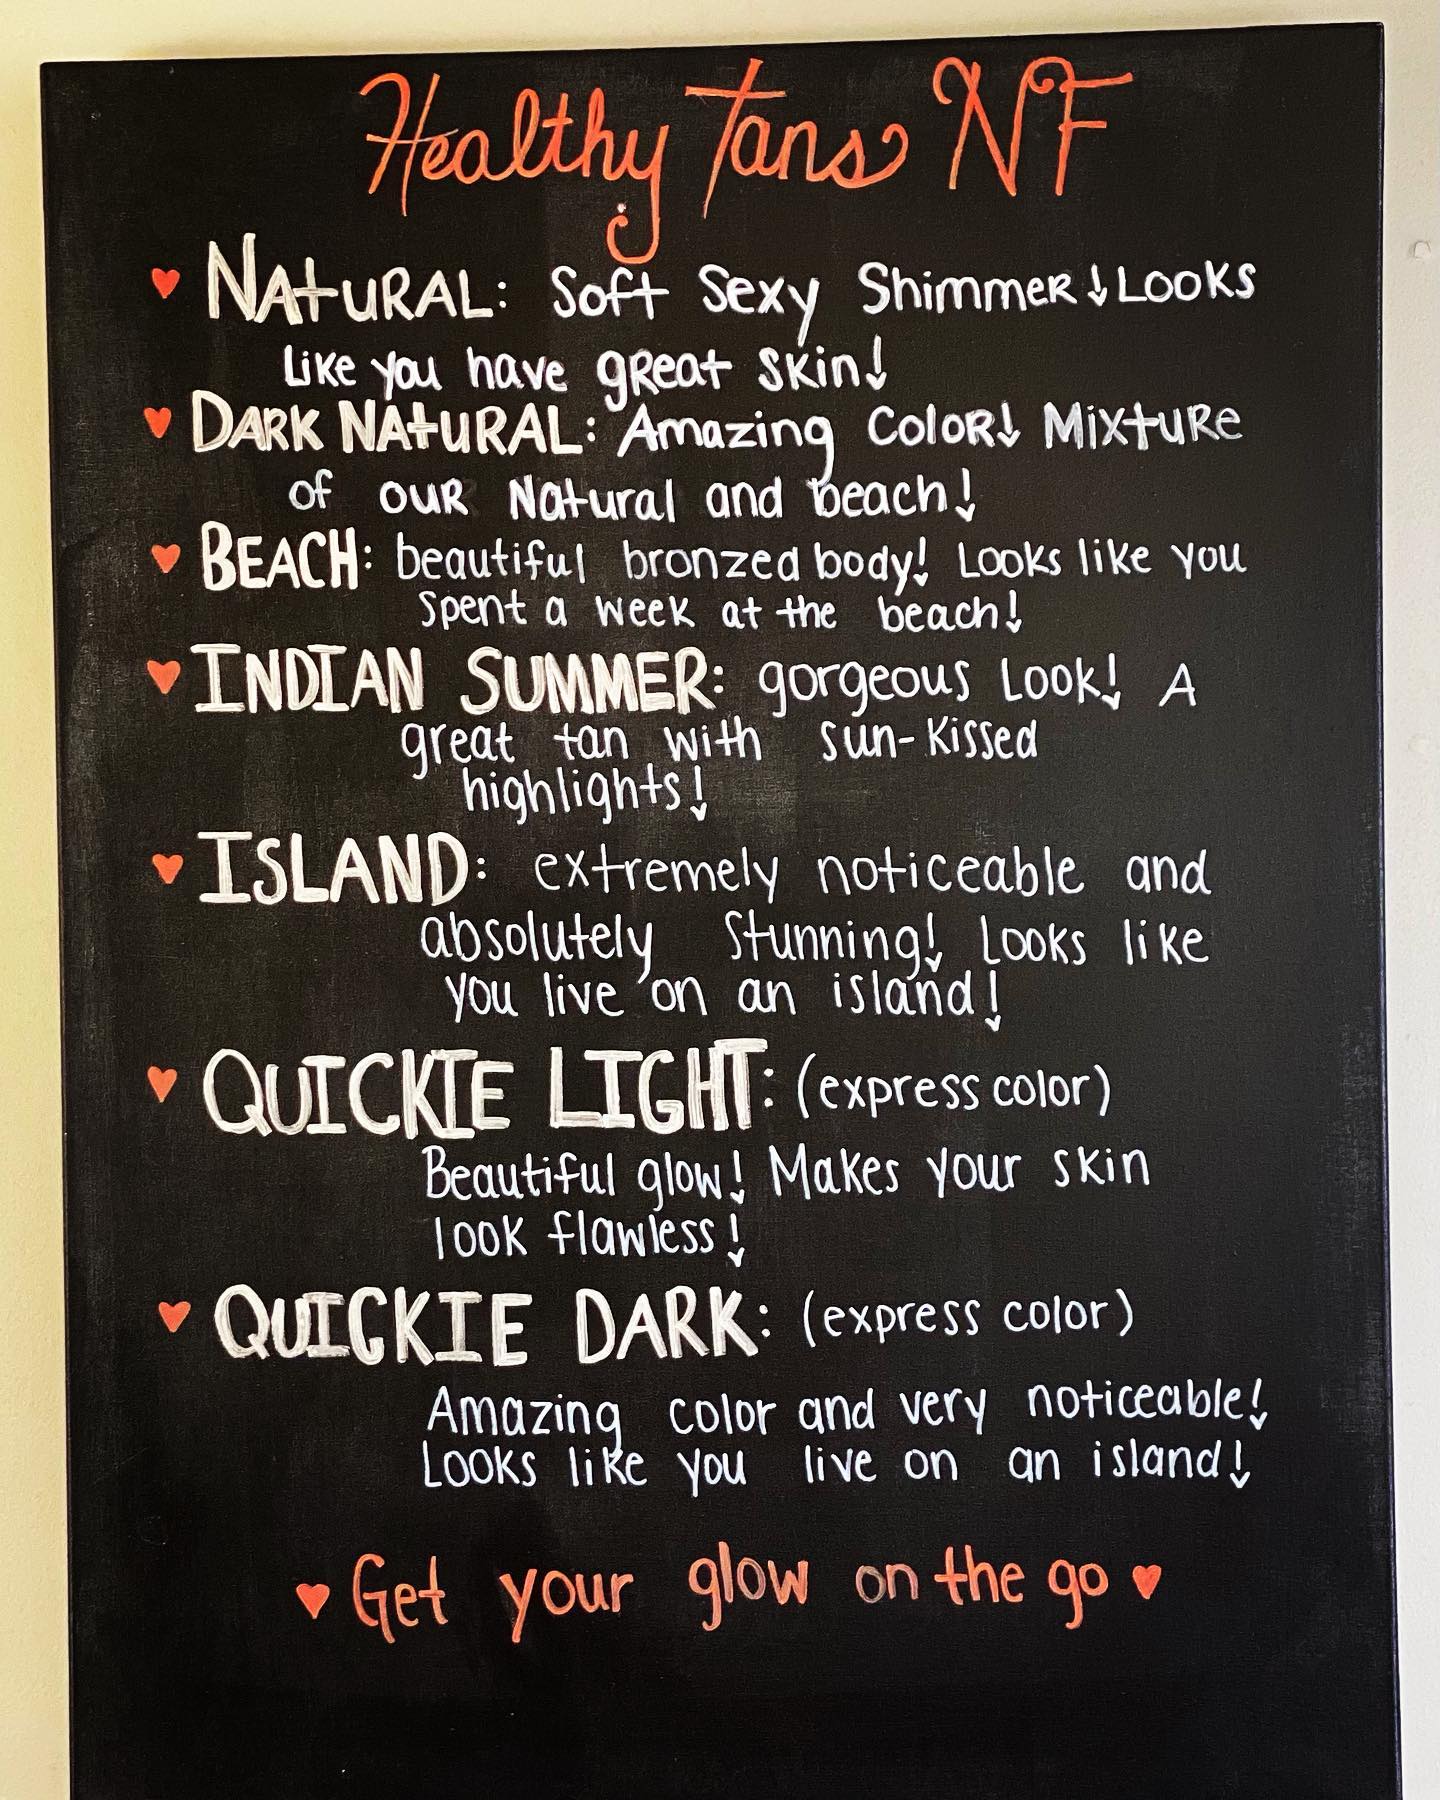 Healthy Tans NF
NAtURAL: Soft Sexy ShimmeR! Looks
Like you have gReat skin!
DARK NAtURAL: Amazing ColoR! MixtuRe
of ouR Natural and beach!
BEACH: beautiful bronzed body! Looks like you
spent a week at the beach!
INDIAN SUMMER: gorgeous Look! A
great tan with sun-kissed
highlights!
ISLAND: extremely noticeable and
absolutely stunning! Looks like
you live on an island!
QUICKIE LIGHT: (express color)
Beautiful glow! Makes your skin
look flawless!
QUICKIE DARK: (express color)
Amazing color and very noticeable!
Looks like you live on an island!
Get your glow on the go